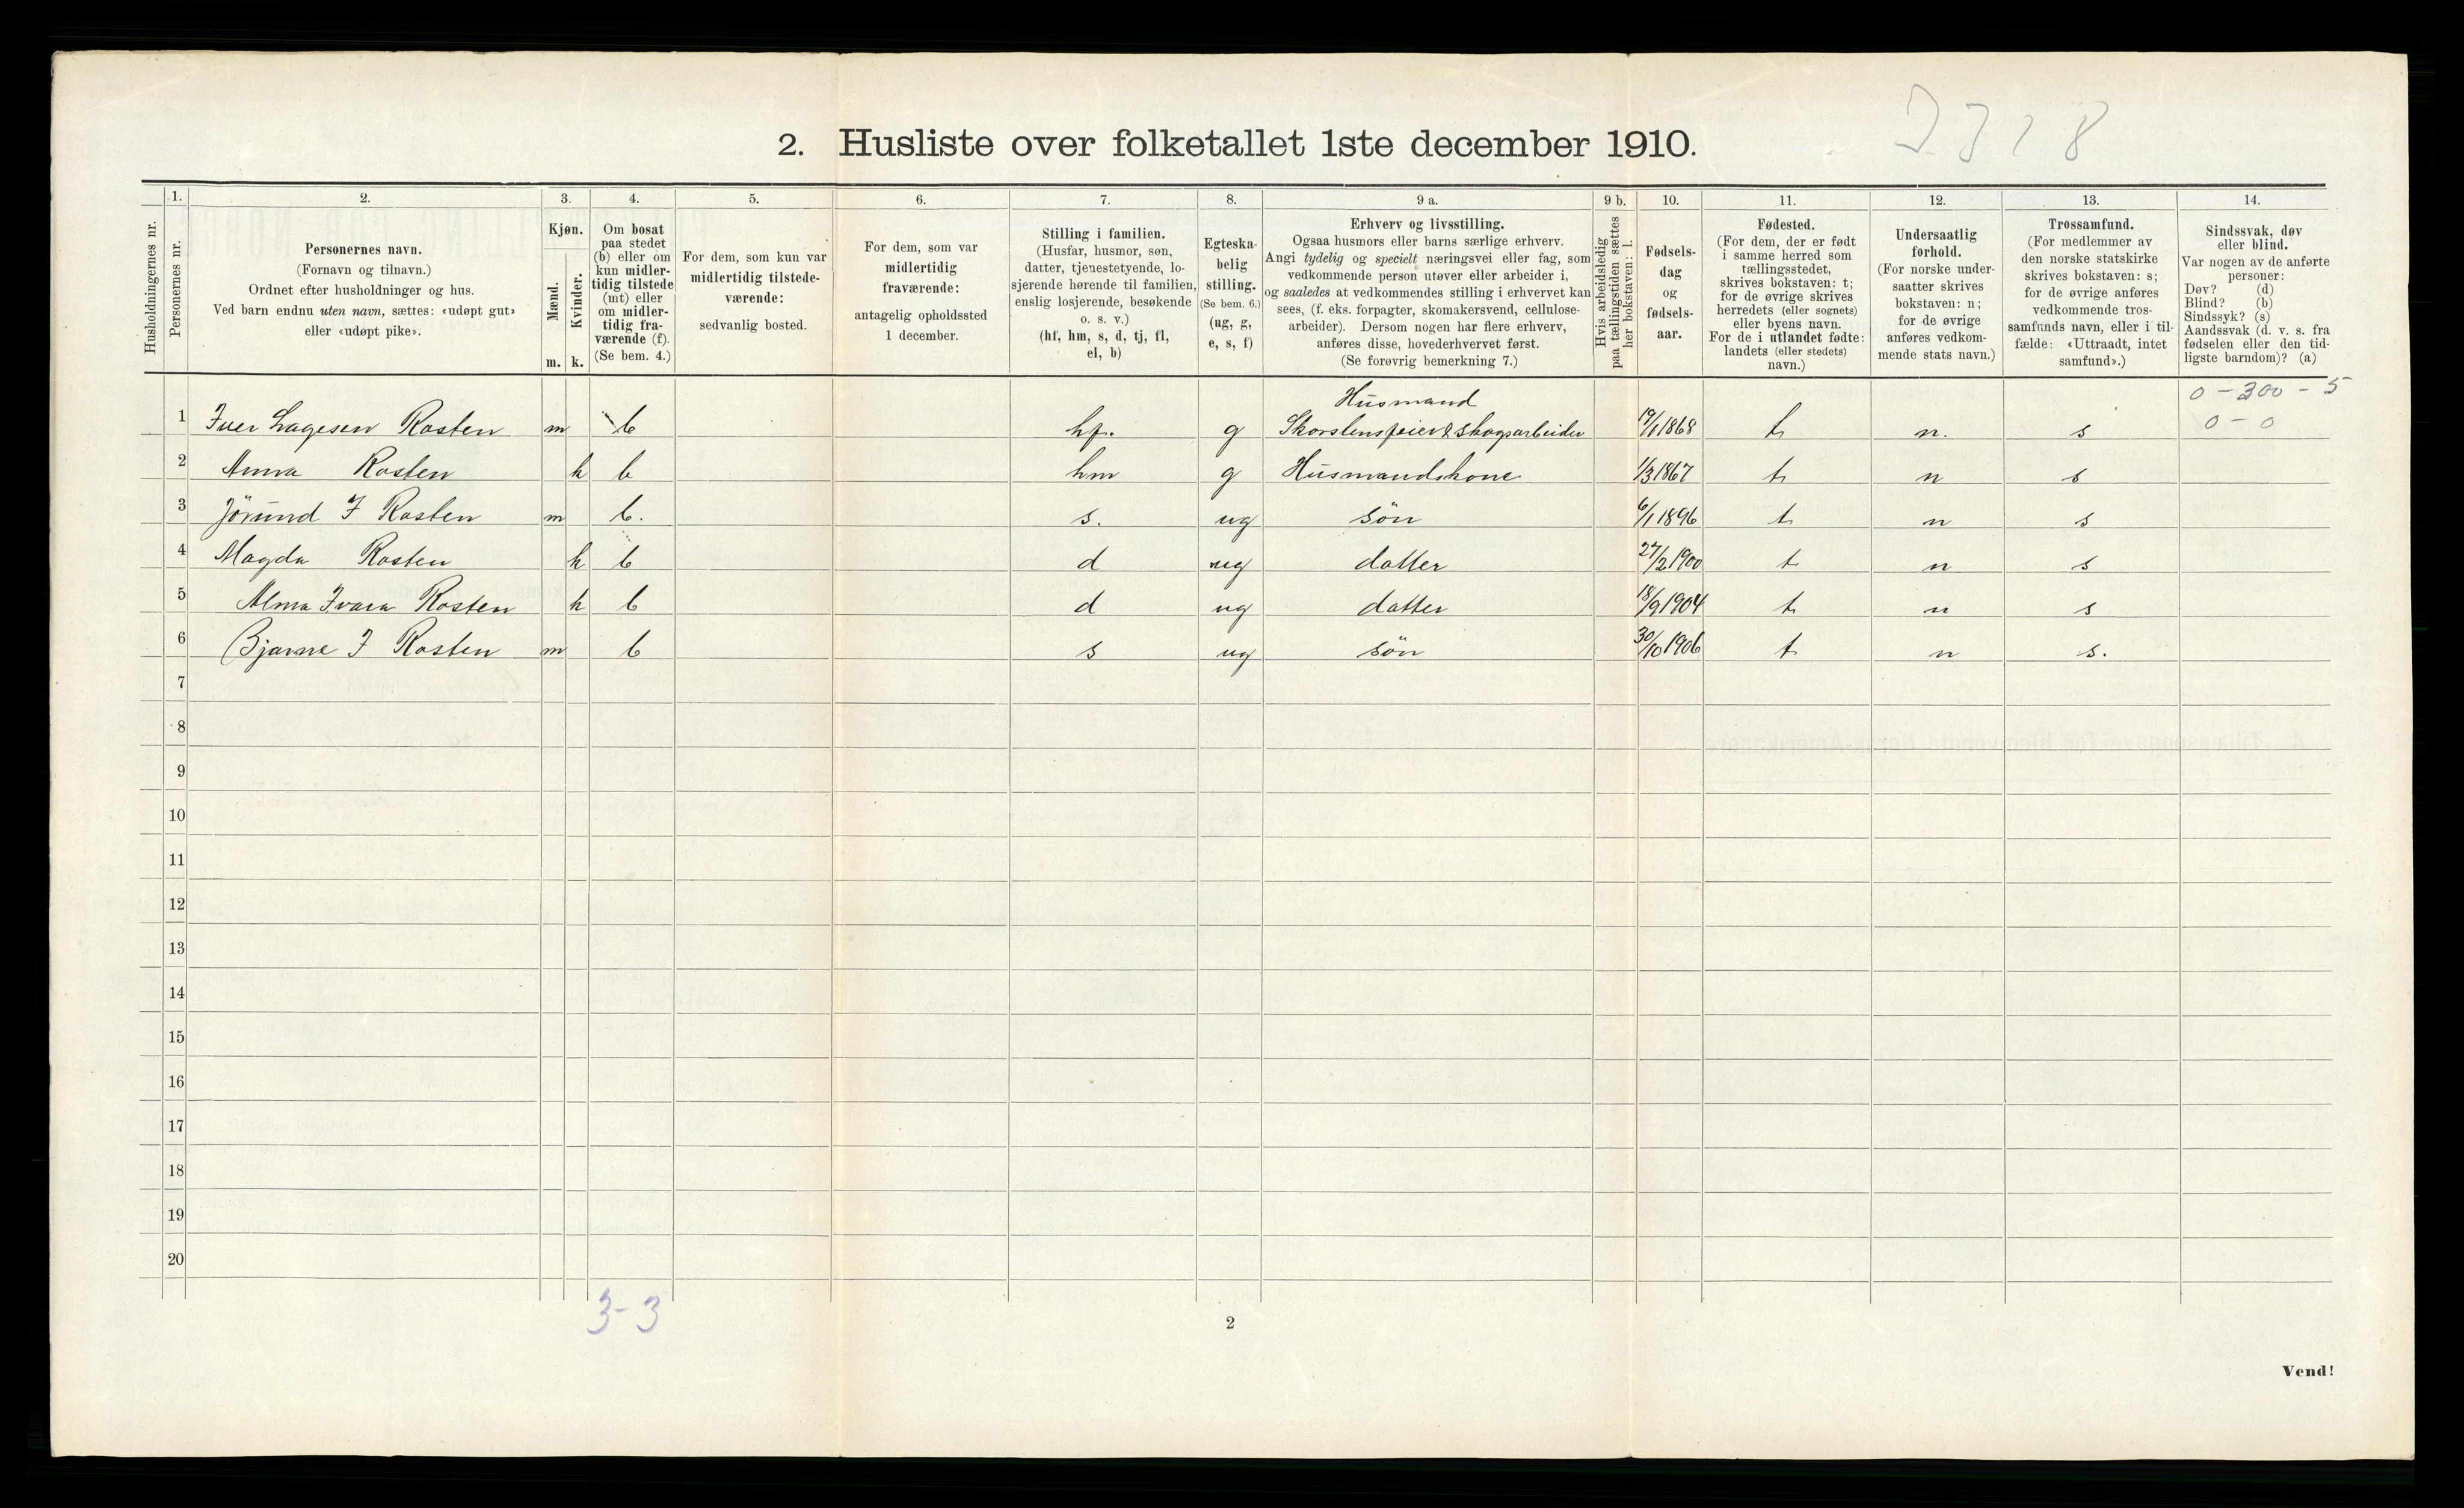 2. Husliste over folketallet 1ste december 1910.
1. 2. 3. 4. 5. 6. 7. 8. 9 a. 9 b. 10. 11. 12. 13. 14.
Husholdningernes nr.
Personernes nr.
Personernes navn.
(Fornavn og tilnavn.)
Ordnet efter husholdninger og hus.
Ved barn endnu uten navn, sættes: «udøpt gut»
eller «udøpt pike».
Kjøn.
Mænd.
m.
Kvinder.
k.
Om bosat
paa stedet
(b) eller om
kun midler-
tidig tilstede
(mt) eller
om midler-
tidig fra-
værende (f).
(Se bem. 4.)
For dem, som kun var
midlertidig tilstede-
værende:
sedvanlig bosted.
For dem, som var
midlertidig
fraværende:
antagelig opholdssted
1 december.
Stilling i familien.
(Husfar, husmor, søn,
datter, tjenestetyende, lo-
sjerende hørende til familien,
enslig losjerende, besøkende
o. s. v.)
(hf, hm, s, d, tj, fl,
el, b)
Egteska-
belig
stilling.
(Se bem. 6.)
(ug, g,
e, s, f)
Erhverv og livsstilling.
Ogsaa husmors eller barns særlige erhverv.
Angi tydelig og specielt næringsvei eller fag, som
vedkommende person utøver eller arbeider i,
og saaledes at vedkommendes stilling i erhvervet kan
sees, (f. eks. forpagter, skomakersvend, cellulose-
arbeider). Dersom nogen har flere erhverv,
anføres disse, hovederhvervet først.
(Se forøvrig bemerkning 7.)
Hvis arbeidsledig
paa tællingstiden sættes
her bokstaven: l.
Fødsels-
dag
og
fødsels-
aar.
Fødested.
(For dem, der er født
i samme herred som
tællingsstedet,
skrives bokstaven: t;
for de øvrige skrives
herredets (eller sognets)
eller byens navn.
For de i utlandet fødte:
landets (eller stedets)
navn.)
Undersaatlig
forhold.
(For norske under-
saatter skrives
bokstaven: n;
for de øvrige
anføres vedkom-
mende stats navn.)
Trossamfund.
(For medlemmer av
den norske statskirke
skrives bokstaven: s;
for de øvrige anføres
vedkommende tros-
samfunds navn, eller i til-
fælde: «Uttraadt, intet
samfund».)
Sindssvak, døv
eller blind.
Var nogen av de anførte
personer:
Døv? (d)
Blind? (b)
Sindssyk? (s)
Aandssvak (d. v. s. fra
fødselen eller den tid-
ligste barndom)? (a)
Husmand 0 - 300 - 5
1 Iver Lagesen Rosten m b hf. g Skorstensfeier & skogsarbeider 19/1 1868 t n. s 0 - 0
2 Anna Rosten k b hm g Husmandskone 1/3 1867 t n s
3 Jörund I Rosten m b. s. ug sön 6/1 1896 t n s
4 Magda Rosten k b d ug datter 27/2 1900 t n s
5 Alma Ivara Rosten k b d ug datter 18/9 1904 t n s
6 Bjarne I Rosten m b s ug sön 30/10 1906 t n s.
7
8
9
10
11
12
13
14
15
16
17
18
19
20
3-3
2
Vend!